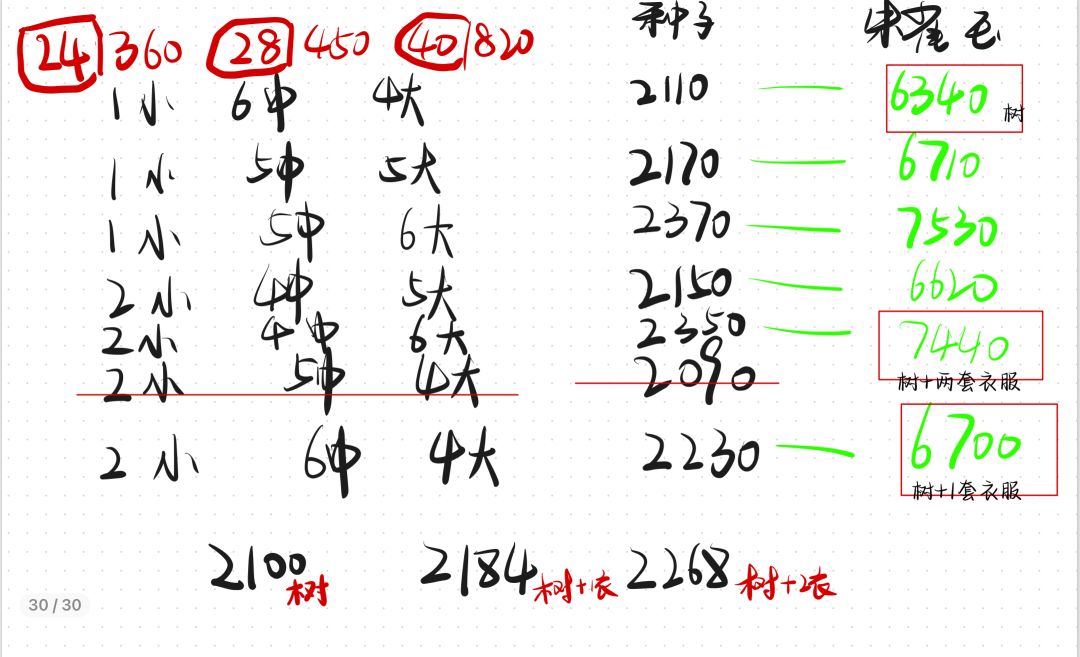 24 360 28 450 40 820 种子 朱雀毛
1小 6中 4大 2110 — 6340 树
1小 5中 5大 2170 — 6710
1小 5中 6大 2370 — 7530
2小 4中 5大 2150 — 6620
2小 4中 6大 2350 — 7440
树+两套衣服
2小 5中 4大 2090
2小 6中 4大 2230 — 6700
树+1套衣服
2100树 2184树+1衣 2268树+2衣
30 / 30